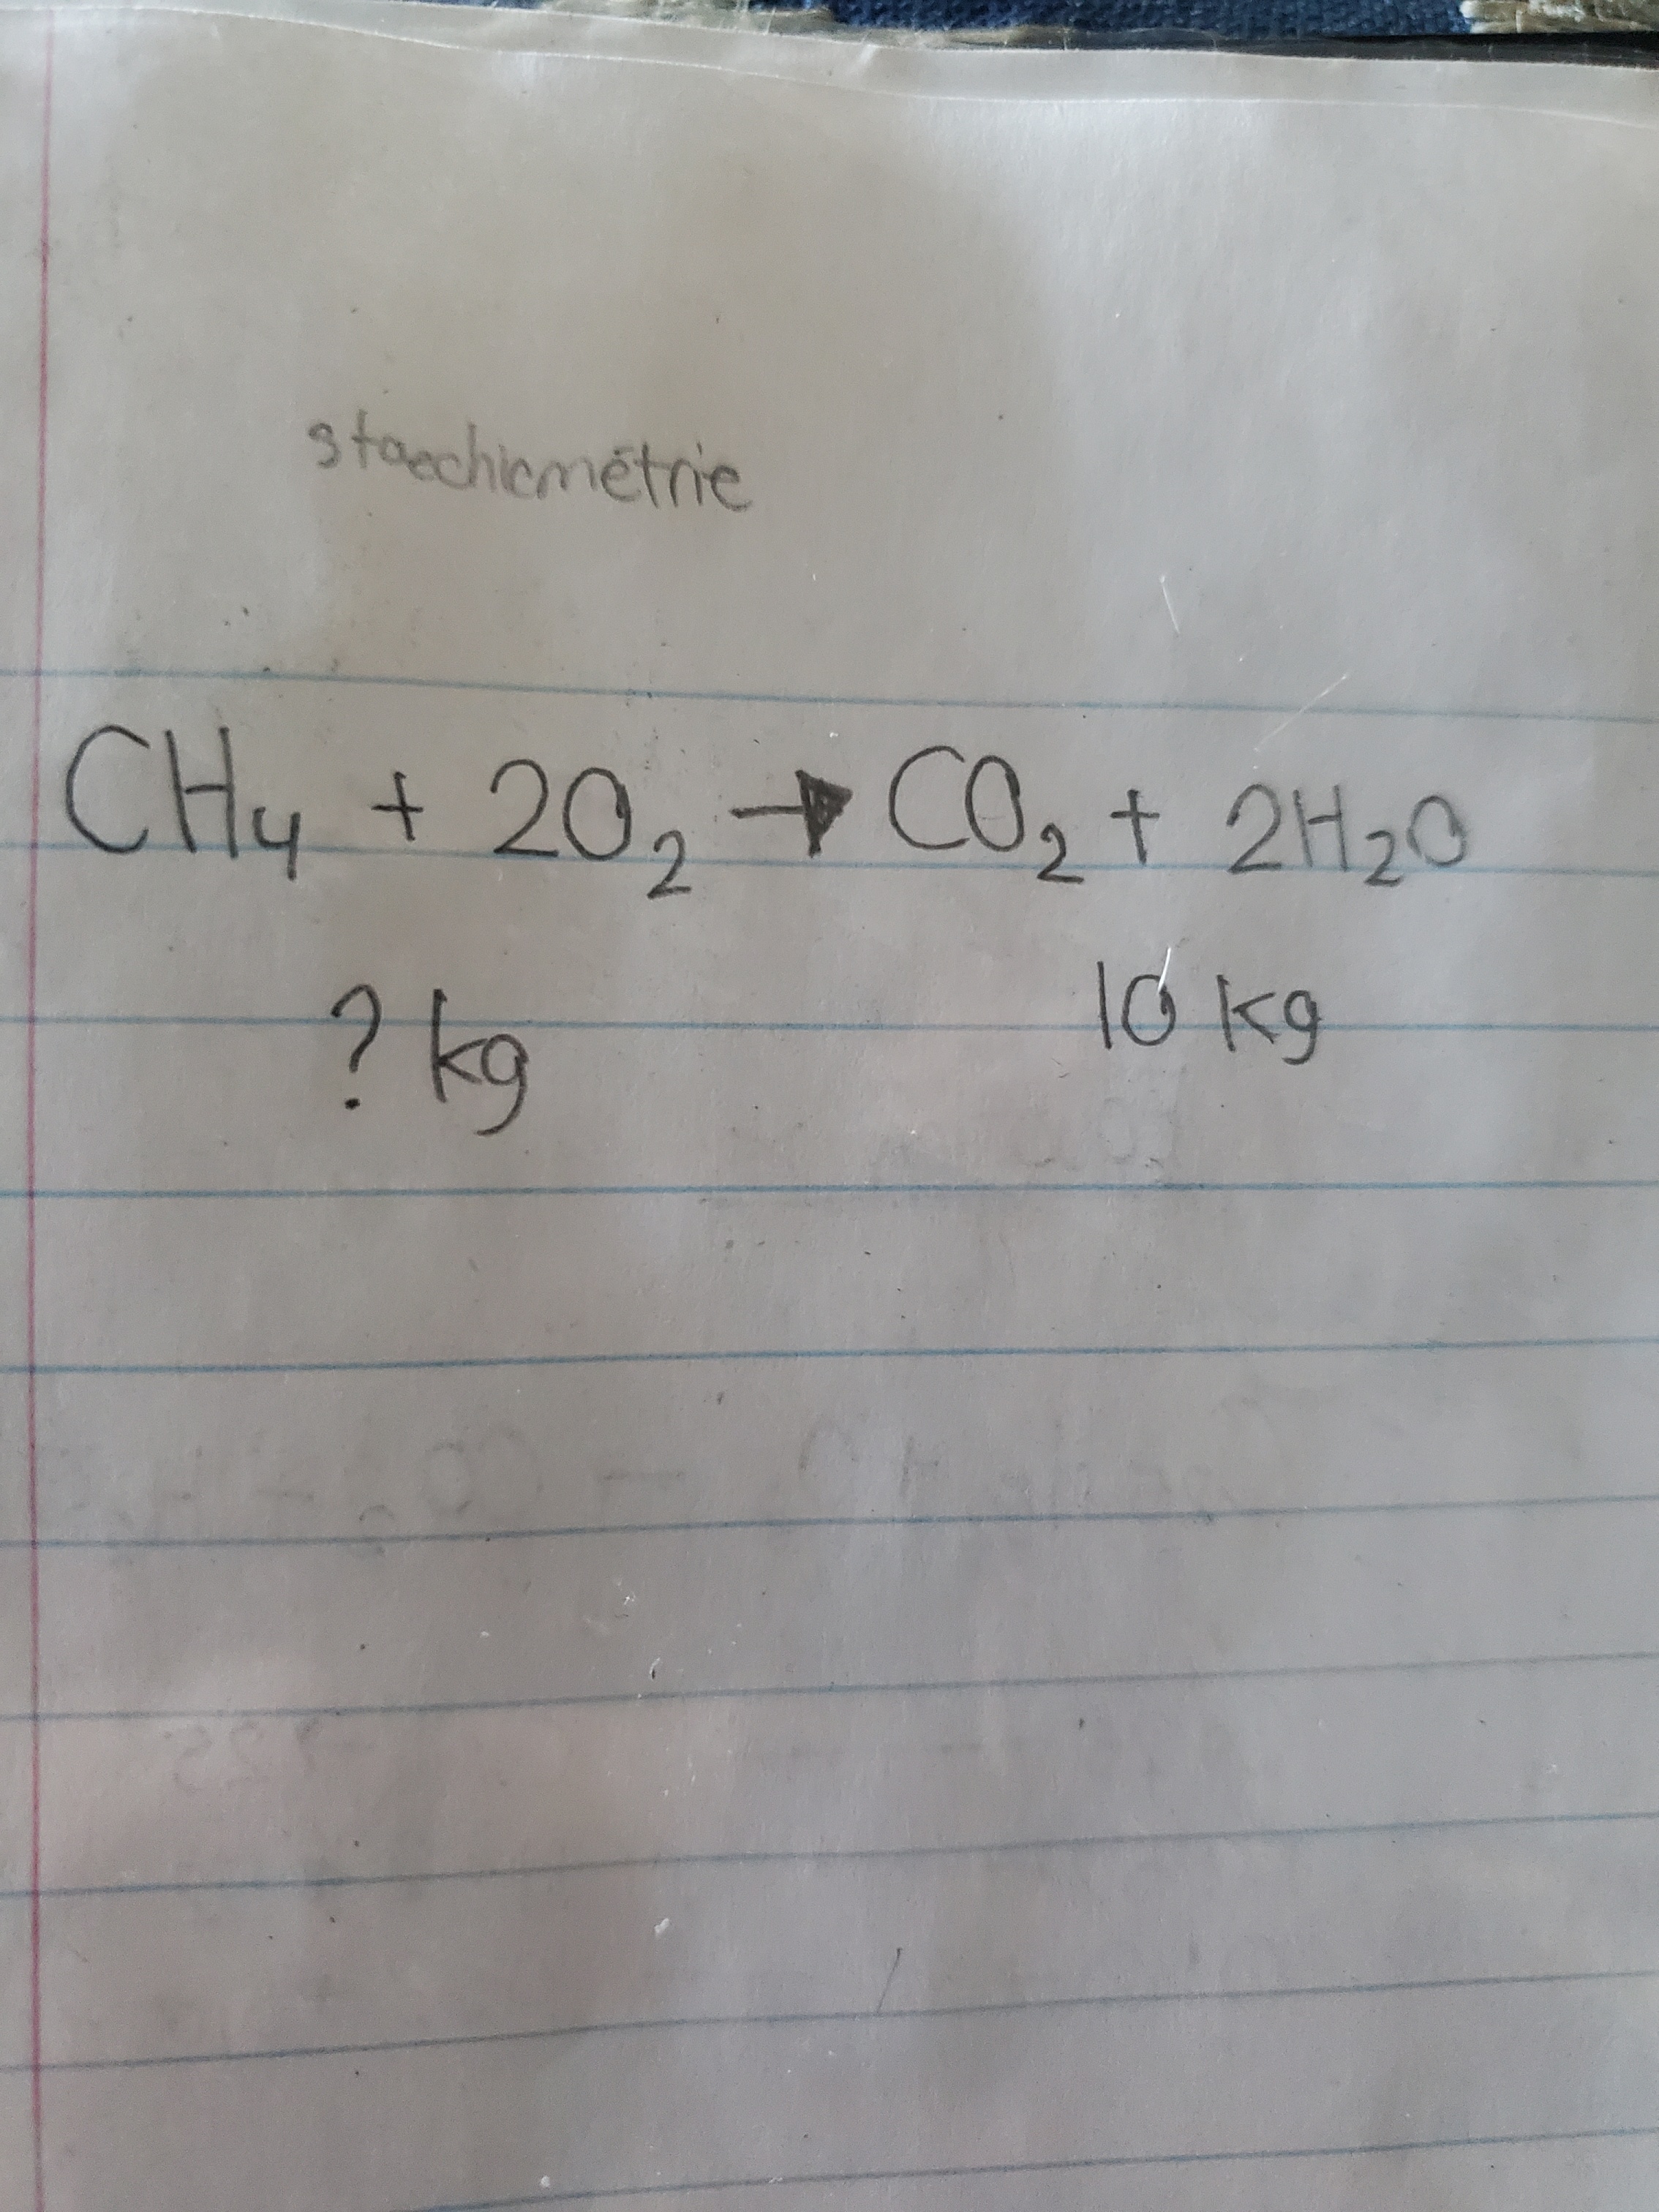 stoechiométrie
CH₄ + 2O₂ → CO₂ + 2H₂O
? kg 10 kg